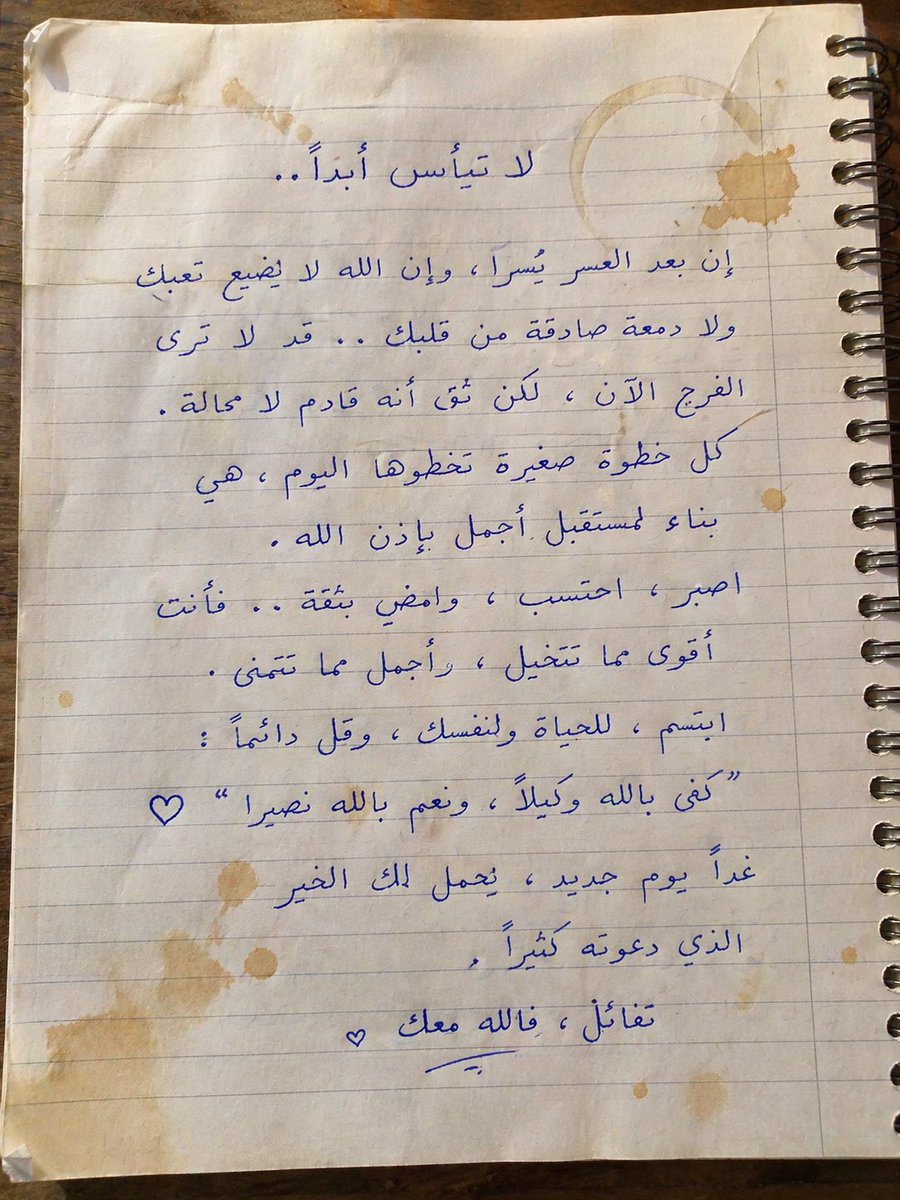 لا تيأس أبداً..
إن بعد العسر يُسرا، وإن الله لا يُضيع تعبك
ولا دمعة صادقة من قلبك .. قد لا ترى
الفرج الآن ، لكن ثق أنه قادم لا محالة .
كل خطوة صغيرة تخطوها اليوم ، هي
بناء لمستقبل أجمل بإذن الله .
اصبر ، احتسب ، وامضي بثقة .. فأنت
أقوى مما تتخيل ، وأجمل مما تتمنى .
ابتسم ، للحياة ولنفسك ، وقل دائماً :
”كفى بالله وكيلاً ، ونعم بالله نصيرا “ ♡
غداً يوم جديد ، يحمل لك الخير
الذي دعوته كثيراً .
تفائل ، فالله معك ♡